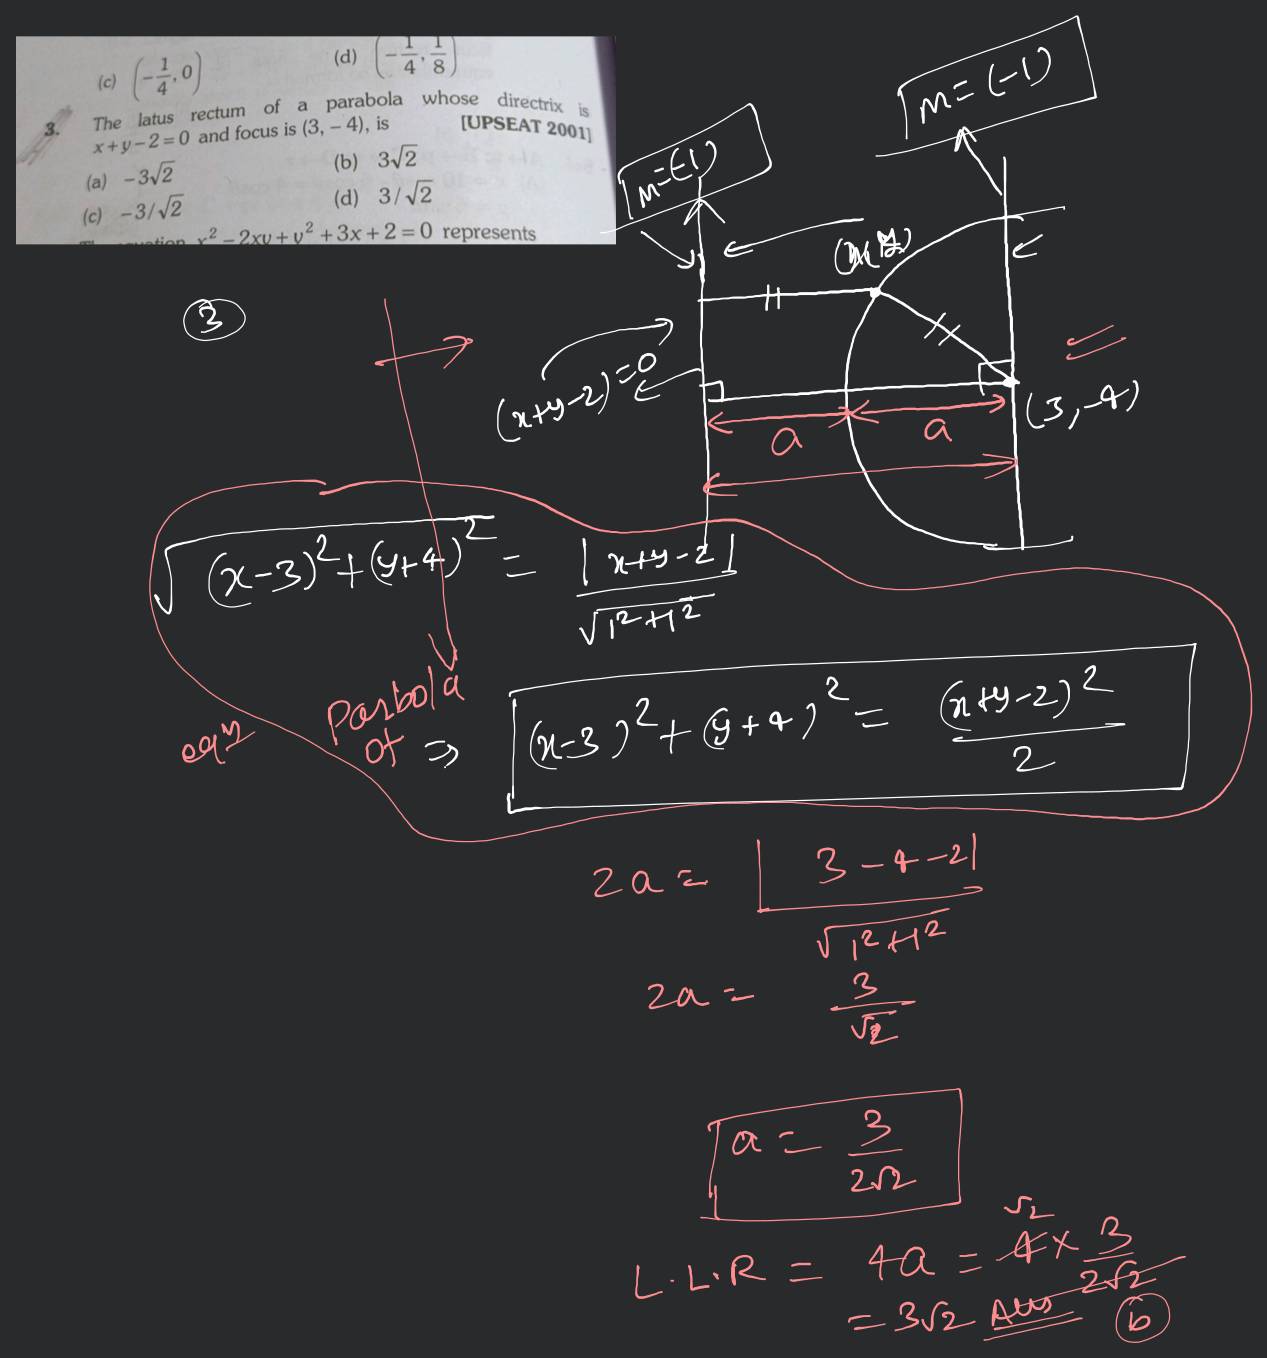 (c) (-1/4, 0) (d) (-1/4, 1/8)
3. The latus rectum of a parabola whose directrix is
x+y-2=0 and focus is (3, -4), is [UPSEAT 2001]
(a) -3√2 (b) 3√2
(c) -3/√2 (d) 3/√2
equation x² - 2xy + y² + 3x + 2 = 0 represents
m=(-1)
m=(-1)
3
(x+y-2)=0
(3,-4)
a a
√(x-3)²+(y+4)² = |x+y-2| / √1²+1²
eqn of Parbola ⇒ (x-3)²+(y+4)² = (x+y-2)² / 2
2a = |3-4-2| / √1²+1²
2a = 3/√2
a = 3/2√2
L.L.R = 4a = 4 × 3/2√2
√2
= 3√2 Ans (b)